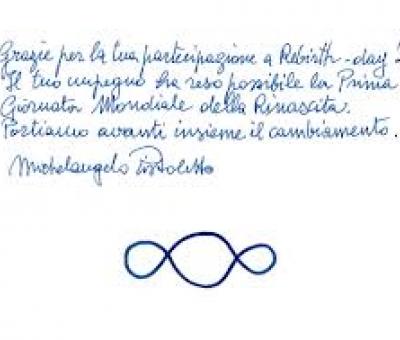 Grazie per la tua partecipazione a Rebirth-day
Il tuo impegno ha reso possibile la Prima
Giornata Mondiale della Rinascita.
Portiamo avanti insieme il cambiamento.
Michelangelo Pistoletto